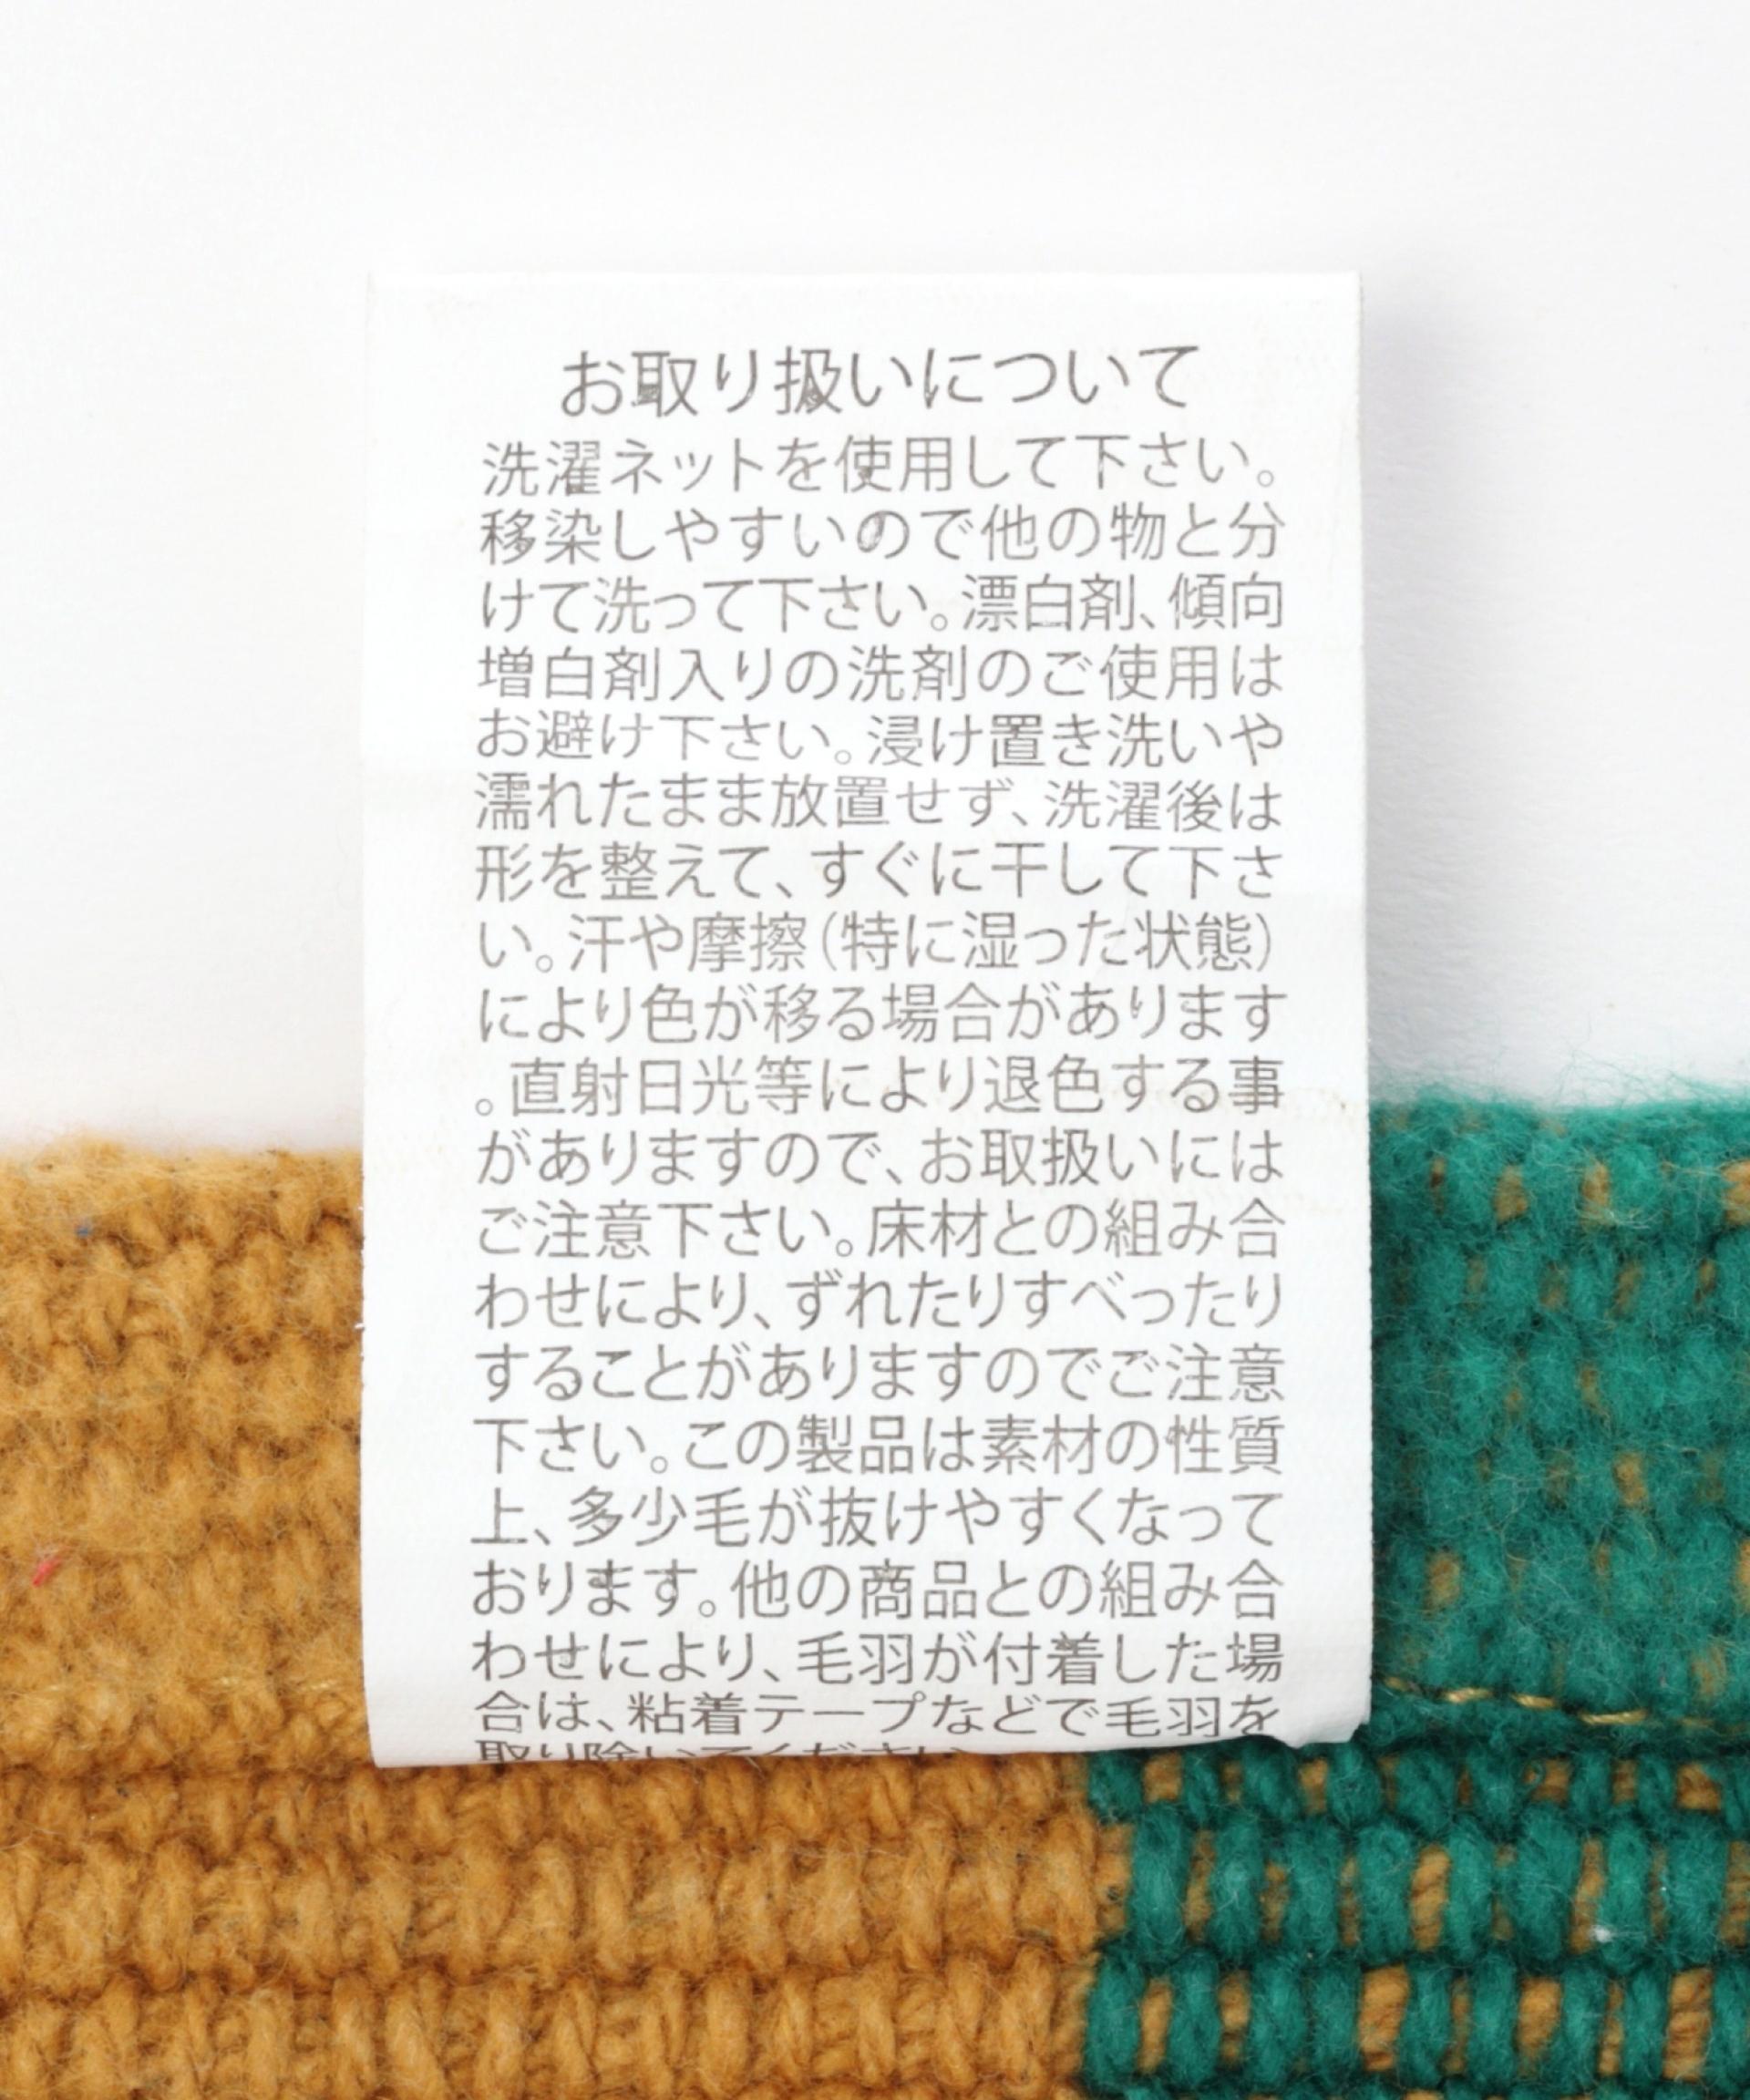 お取り扱いについて
洗濯ネットを使用して下さい。
移染しやすいので他の物と分
けて洗って下さい。漂白剤、傾向
増白剤入りの洗剤のご使用は
お避け下さい。浸け置き洗いや
濡れたまま放置せず、洗濯後は
形を整えて、すぐに干して下さ
い。汗や摩擦(特に湿った状態)
により色が移る場合があります
。直射日光等により退色する事
がありますので、お取扱いには
ご注意下さい。床材との組み合
わせにより、ずれたりすべったり
することがありますのでご注意
下さい。この製品は素材の性質
上、多少毛が抜けやすくなって
おります。他の商品との組み合
わせにより、毛羽が付着した場
合は、粘着テープなどで毛羽を
取り除いてください